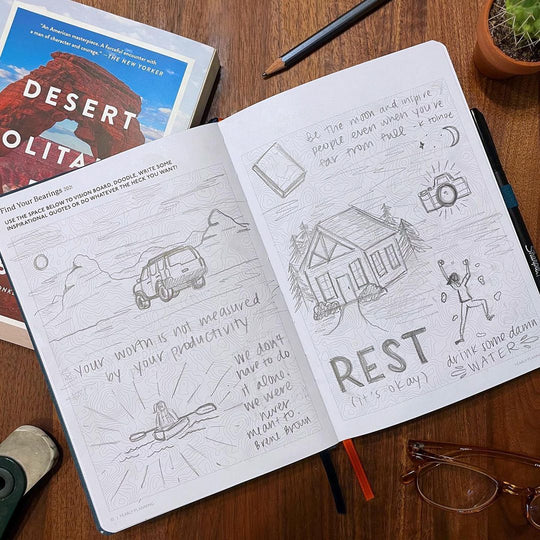 "An American masterpiece. A forceful encounter with
a man of character and courage." —THE NEW YORKER
DESERT
OLITAI
Find Your Bearings
USE THE SPACE BELOW TO VISION BOARD, DOODLE, WRITE SOME
INSPIRATIONAL QUOTES OR DO WHATEVER THE HECK YOU WANT!
your worth is not measured
by your productivity
we don't
have to do
it alone.
we were
never
meant to.
Brené Brown
YEARLY PLANNING
Be the moon and inspire
people even when you're
far from full - K. Tolnoe
REST
(it's okay)
drink some damn
WATER